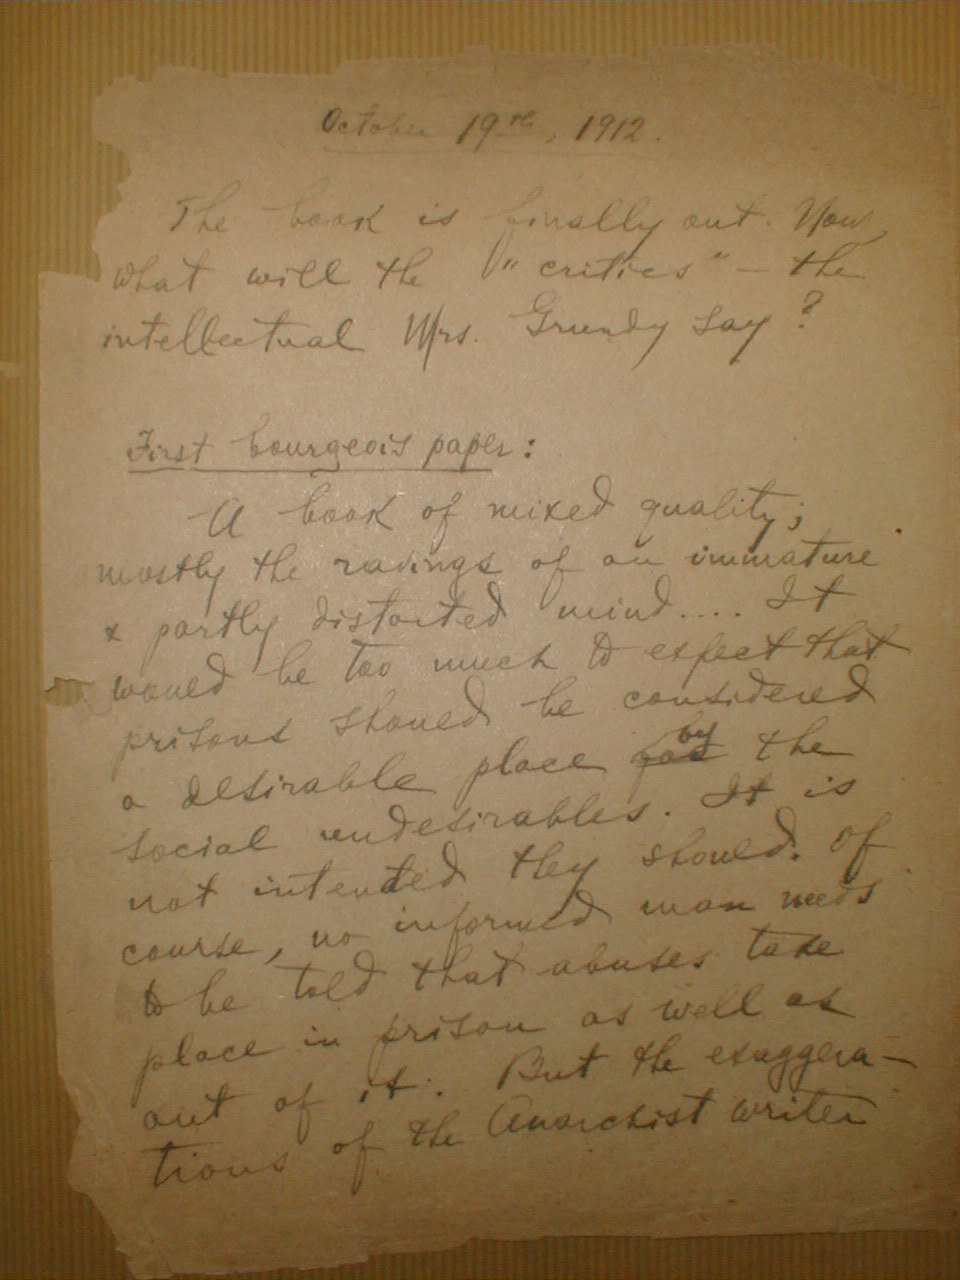 October 19th, 1912.
The book is finally out. Now
what will the "critics" — the
intellectual Mrs. Grundy say?
First bourgeois paper:
A book of mixed quality;
mostly the ravings of an immature
& partly distorted mind.... It
would be too much to expect that
prisons should be considered
a desirable place for by the
social undesirables. It is
not intended they should. Of
course, no informed man needs
to be told that abuses take
place in prison as well as
out of it. But the exaggera-
tions of the Anarchist writer